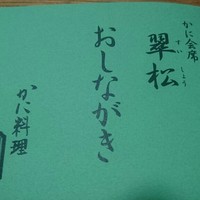 かに会席
翠松
すい しょう
おしながき
かに料理